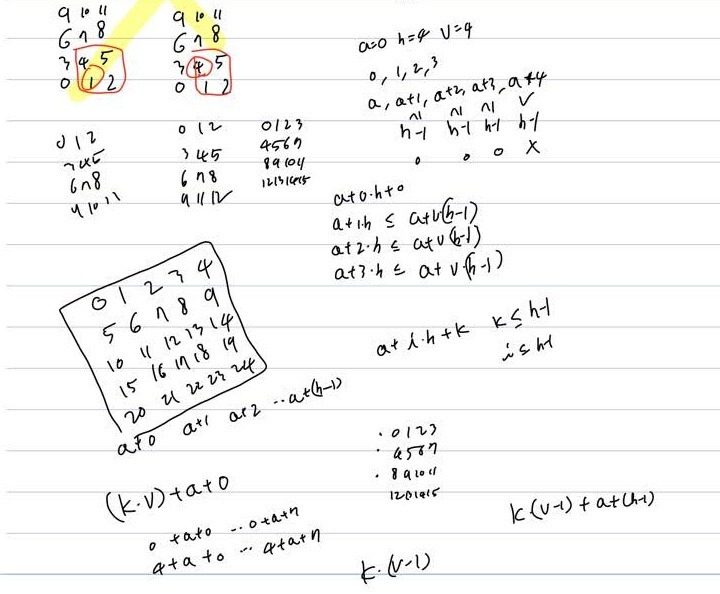 9 10 11
6 7 8
3 4 5
0 1 2
9 10 11
6 7 8
3 4 5
0 1 2
a=0 h=4 v=4
0, 1, 2, 3
a, a+1, a+2, a+3, a+4
h-1 h-1 h-1 h-1
0 0 0 X
0 1 2
3 4 5
6 7 8
9 10 11
0 1 2
3 4 5
6 7 8
9 11 12
0 1 2 3
4 5 6 7
8 9 10 11
12 13 14 15
a+0·h+0
a+1·h ≤ a+v(h-1)
a+2·h ≤ a+v(h-1)
a+3·h ≤ a+v·(h-1)
0 1 2 3 4
5 6 7 8 9
10 11 12 13 14
15 16 17 18 19
20 21 22 23 24
a+0 a+1 a+2 ··a+(h-1)
a+i·h+k k≤h-1
i≤h-1
· 0 1 2 3
· 4 5 6 7
· 8 9 10 11
12 13 14 15
(k·v)+a+0
0+a+0 ·· 0+a+n
4+a+0 ·· 4+a+n
k(v-1)+a+(h-1)
k·(v-1)